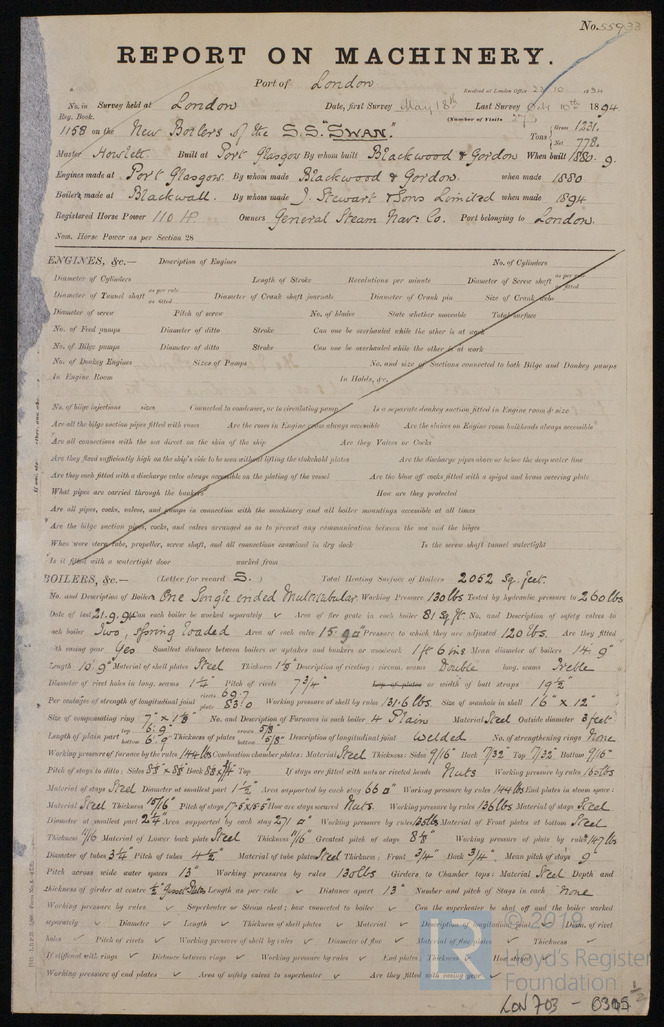 No. 55933
REPORT ON MACHINERY.
Port of London
Received at London Office 10 1894
No. in Survey held at London Date, first Survey May 18th Last Survey Oct 10th 1894
Reg. Book. (Number of Visits
1158 on the New Boilers of the S.S. "SWAN." Tons { Gross 1231. Net 778.
Master Howlett. Built at Port Glasgow By whom built Blackwood & Gordon When built 1880. 9.
Engines made at Port Glasgow. By whom made Blackwood & Gordon. when made 1880
Boilers made at Blackwall. By whom made J. Stewart & Sons Limited when made 1894
Registered Horse Power 110 HP Owners General Steam Nav: Co. Port belonging to London.
Nom. Horse Power as per Section 28
ENGINES, &c.— Description of Engines No. of Cylinders
Diameter of Cylinders Length of Stroke Revolutions per minute Diameter of Screw shaft as per rule as fitted
Diameter of Tunnel shaft as per rule as fitted Diameter of Crank shaft journals Diameter of Crank pin Size of Crank webs
Diameter of screw Pitch of screw No. of blades State whether moveable Total surface
No. of Feed pumps Diameter of ditto Stroke Can one be overhauled while the other is at work
No. of Bilge pumps Diameter of ditto Stroke Can one be overhauled while the other is at work
No. of Donkey Engines Sizes of Pumps No. and size of Suctions connected to both Bilge and Donkey pumps
In Engine Room In Holds, &c.
No. of bilge injections sizes Connected to condenser, or to circulating pump Is a separate donkey suction fitted in Engine room & size
Are all the bilge suction pipes fitted with roses Are the roses in Engine room always accessible Are the sluices on Engine room bulkheads always accessible
Are all connections with the sea direct on the skin of the ship Are they Valves or Cocks
Are they fixed sufficiently high on the ship's side to be seen without lifting the stokehold plates Are the discharge pipes above or below the deep water line
Are they each fitted with a discharge valve always accessible on the plating of the vessel Are the blow off cocks fitted with a spigot and brass covering plate
What pipes are carried through the bunkers How are they protected
Are all pipes, cocks, valves, and pumps in connection with the machinery and all boiler mountings accessible at all times
Are the bilge suction pipes, cocks, and valves arranged so as to prevent any communication between the sea and the bilges
When were stern tube, propeller, screw shaft, and all connections examined in dry dock Is the screw shaft tunnel watertight
Is it fitted with a watertight door worked from
BOILERS, &c.— (Letter for record S.) Total Heating Surface of Boilers 2052 sq. feet.
No. and Description of Boilers One Single ended Multitubular. Working Pressure 130 lbs Tested by hydraulic pressure to 260 lbs
Date of test 21.9.94 Can each boiler be worked separately ✓ Area of fire grate in each boiler 81 sq. ft. No. and Description of safety valves to
each boiler Two, Spring loaded Area of each valve 15.9 □" Pressure to which they are adjusted 120 lbs. Are they fitted
with easing gear Yes Smallest distance between boilers or uptakes and bunkers or woodwork 1 ft 6 ins Mean diameter of boilers 14' 9"
Length 10' 9" Material of shell plates Steel Thickness 1⅛" Description of riveting: circum. seams Double long. seams Treble
Diameter of rivet holes in long. seams 1¼" Pitch of rivets 7¾" Lap of plates or width of butt straps 19½"
Per centages of strength of longitudinal joint rivets 69.7 plate 83.0 Working pressure of shell by rules 131.6 lbs. Size of manhole in shell 16" x 12"
Size of compensating ring 7" x 1⅛" No. and Description of Furnaces in each boiler 4 Plain Material Steel Outside diameter 3 feet
Length of plain part top 6'.9" bottom 6'.9" Thickness of plates crown 5/8" bottom 5/8" Description of longitudinal joint Welded No. of strengthening rings None
Working pressure of furnace by the rules 144 lbs Combustion chamber plates: Material Steel Thickness: Sides 9/16" Back 17/32" Top 17/32" Bottom 9/16"
Pitch of stays to ditto: Sides Back Top If stays are fitted with nuts or riveted heads Nuts Working pressure by rules
Material of stays Steel Diameter at smallest part 1½" Area supported by each stay 66 □" Working pressure by rules 144 lbs End plates in steam space:
Material Steel Thickness 15/16" Pitch of stays How are stays secured Nuts. Working pressure by rules 136 lbs Material of stays Steel
Diameter at smallest part 2¼" Area supported by each stay 271 □" Working pressure by rules Material of Front plates at bottom Steel
Thickness 11/16 Material of Lower back plate Steel Thickness 11/16" Greatest pitch of stays 8⅛" Working pressure of plate by rules 147 lbs
Diameter of tubes 3¼" Pitch of tubes 4½" Material of tube plates Steel Thickness: Front 3/4" Back 3/4" Mean pitch of stays 9"
Pitch across wide water spaces 13" Working pressures by rules 130 lbs Girders to Chamber tops: Material Steel Depth and
thickness of girder at centre Length as per rule ✓ Distance apart 13" Number and pitch of Stays in each None
Working pressure by rules ✓ Superheater or Steam chest; how connected to boiler ✓ Can the superheater be shut off and the boiler worked
separately ✓ Diameter ✓ Length ✓ Thickness of shell plates ✓ Material ✓ Description of longitudinal joint ✓ Diam. of rivet
holes ✓ Pitch of rivets ✓ Working pressure of shell by rules ✓ Diameter of flue ✓ Material of flue plates ✓ Thickness ✓
If stiffened with rings ✓ Distance between rings ✓ Working pressure by rules ✓ End plates: Thickness ✓ How stayed ✓
Working pressure of end plates ✓ Area of safety valves to superheater ✓ Are they fitted with easing gear ✓
LR © 2019
Lloyd's Register
Foundation
LON 703 - 0305 ½